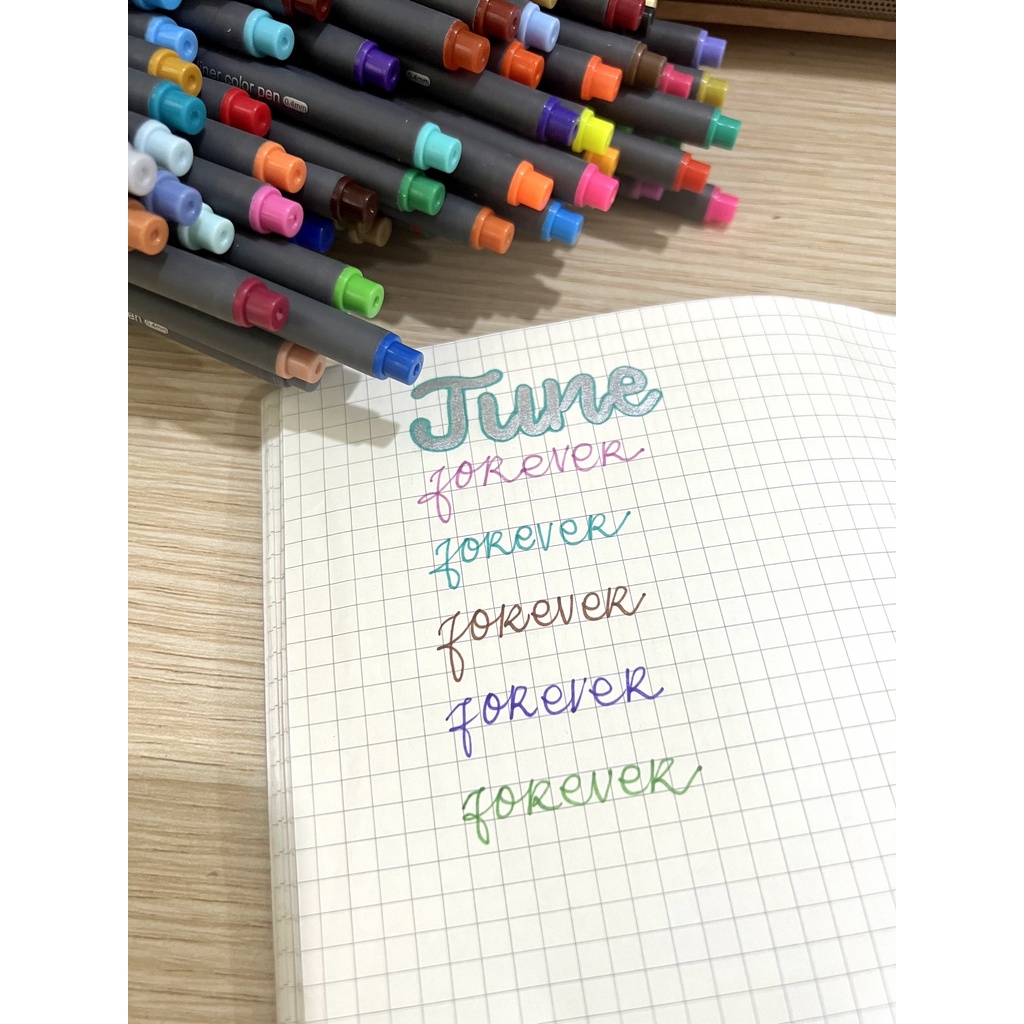 liner color pen 0.4mm
0.4mm
en 0.4mm
June
forever
forever
forever
forever
forever